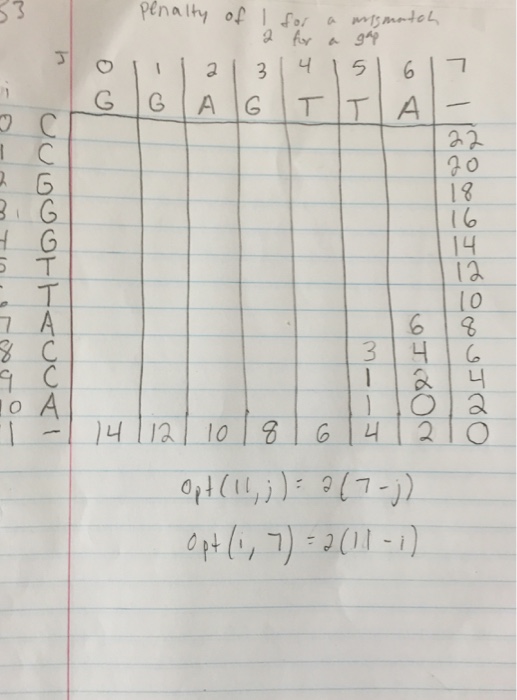 53 Penalty of 1 for a mismatch
2 for a gap
J 0 1 2 3 4 5 6 7
i G G A G T T A –
0 C 22
1 C 20
2 G 18
3 G 16
4 G 14
5 T 12
6 T 10
7 A 6 8
8 C 3 4 6
9 C 1 2 4
10 A 1 0 2
1 – 14 12 10 8 6 4 2 0
opt(11,j) = 2(7-j)
opt(i,7) = 2(11-i)